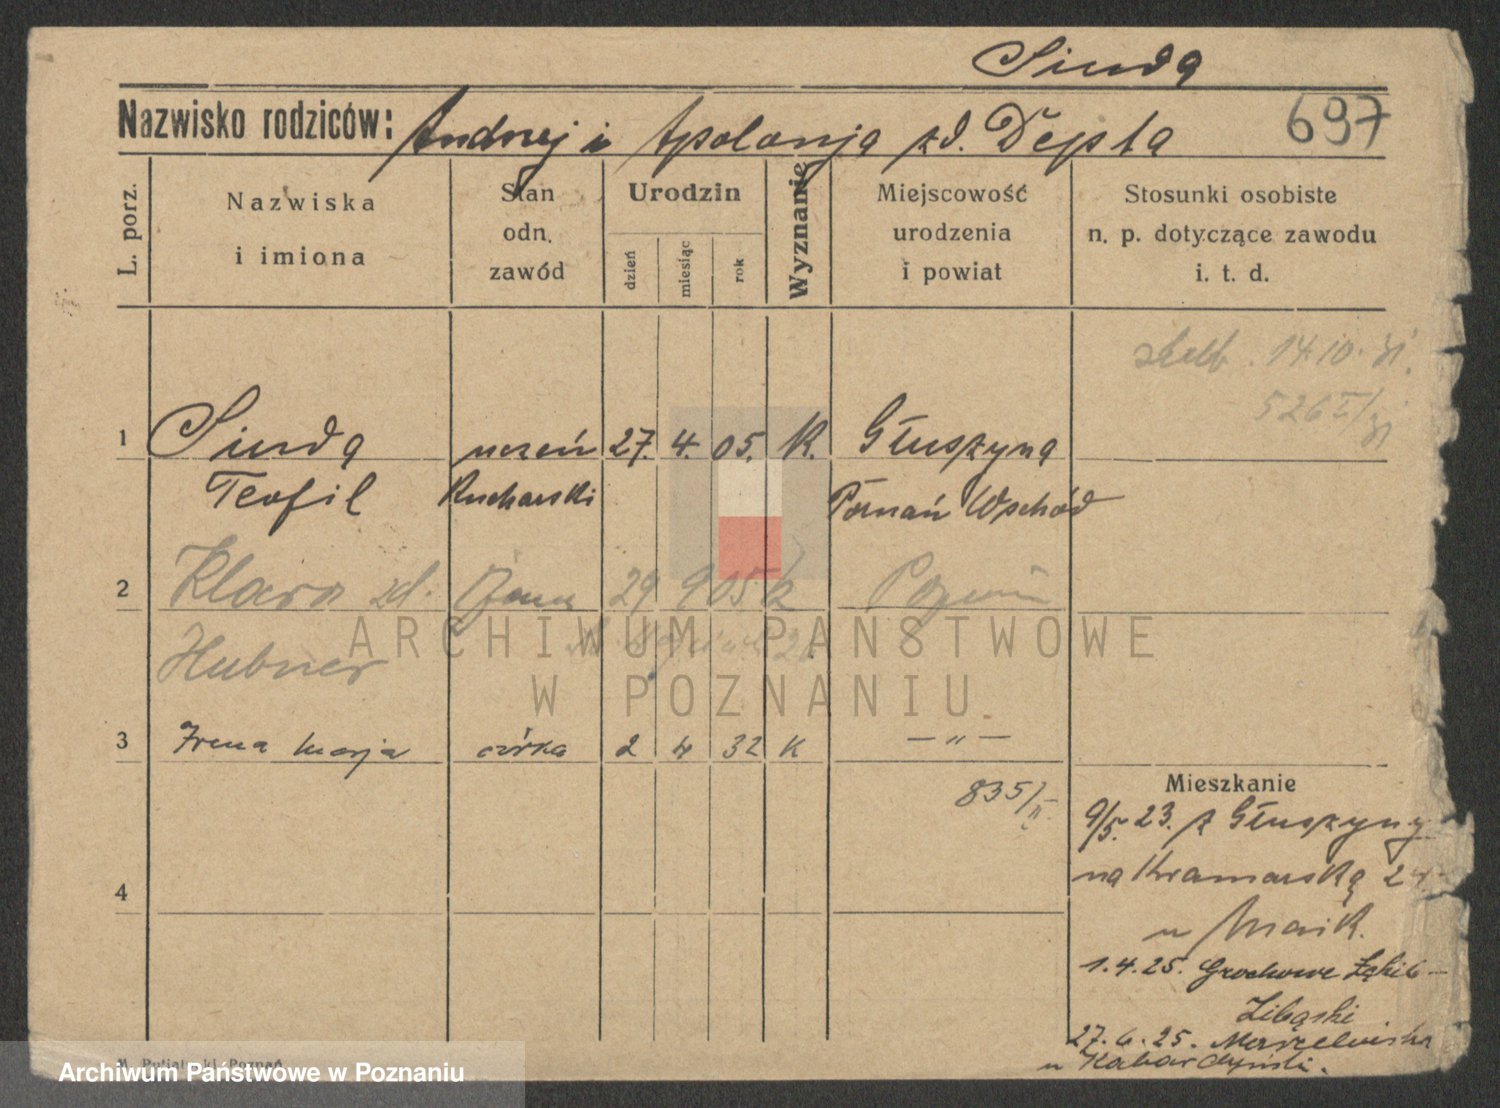 Sinda
Nazwisko rodziców: Andrzej i Apolonja zd. Depta 697
L. porz. Nazwiska i imiona Stan odn. zawód Urodzin dzień miesiąc rok Wyznanie Miejscowość urodzenia i powiat Stosunki osobiste n. p. dotyczące zawodu i. t. d.
14.10.31.
526 I/31
1 Sinda uczeń 27. 4. 05. K. Głuszyna
Teofil Kucharski Poznań Wschód
2 Klara zd. żona 29 9 05 k Poznań
Hubner
ARCHIWUM PAŃSTWOWE
W POZNANIU
3 Irena Marja córka 2 4 32 K — „ —
835/II.
Mieszkanie
9/5. 23. z Głuszyny
na Kramarską 24
u
1.4.25. Grochowe Łąki 6
Zibąski
27.6.25. Masztalarska
u Kabardyński.
4
Poznań
Archiwum Państwowe w Poznaniu